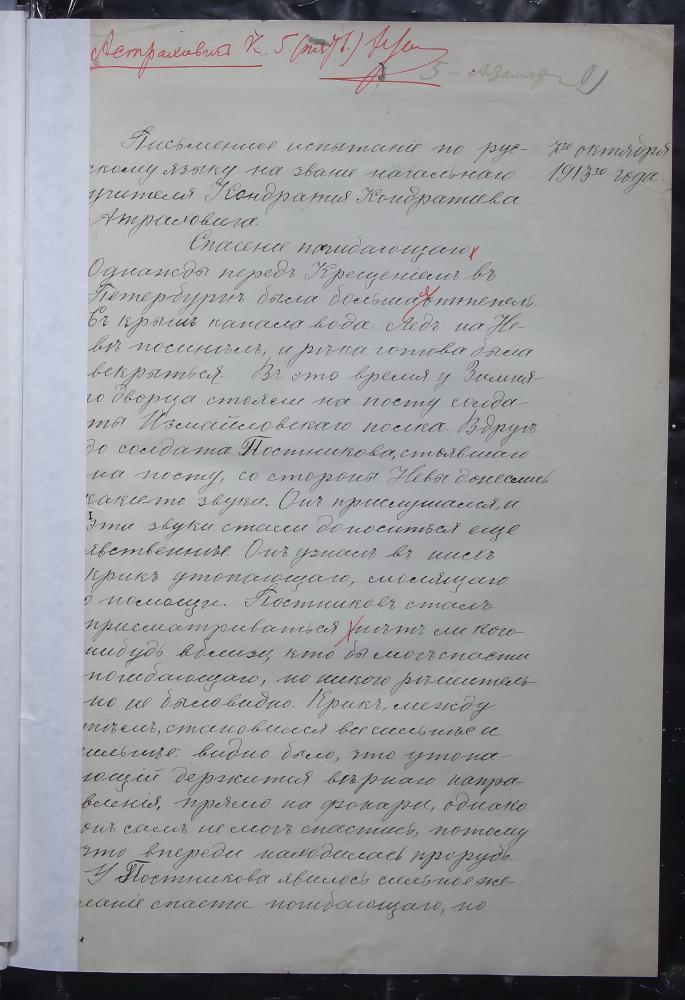 Астрахович К. 5. (пять)
5-
91
Письменное испытаніе по рус-
7го октября
скому языку на званіе начальнаго
1913го года.
учителя Кондратія Кондратьева
Атраховича.
Спасеніе погибающаго
Однажды передъ Крещеніемъ въ
Петербургѣ была большая оттепель.
Съ крышъ капала вода. Ледъ на Не-
вѣ посинѣлъ, и рѣка готова была
вскрыться. Въ это время у Зимня-
го дворца стояли на посту солда-
ты Измайловскаго полка. Вдругъ
до солдата Постникова, стоявшаго
на посту, со стороны Невы донеслись
какіе то звуки. Онъ прислушался, и
эти звуки стали доноситься еще
явственнѣе. Онъ узналъ въ нихъ
крикъ утопающаго, молящаго
о помощи. Постниковъ сталъ
присматриваться нѣтъ ли кого-
нибудь вблизи, кто бы могъ спасти
погибающаго, но никого рѣшитель-
но не было видно. Крикъ, между
тѣмъ, становился все сильнѣе и
сильнѣе: видно было, что утопа-
ющій держится вѣрнаго напра-
вленія, прямо на фонари, однако
онъ самъ не могъ спастись, потому
что впереди находилась прорубь.
У Постникова явилось сильное же-
ланіе спасти погибающаго, но